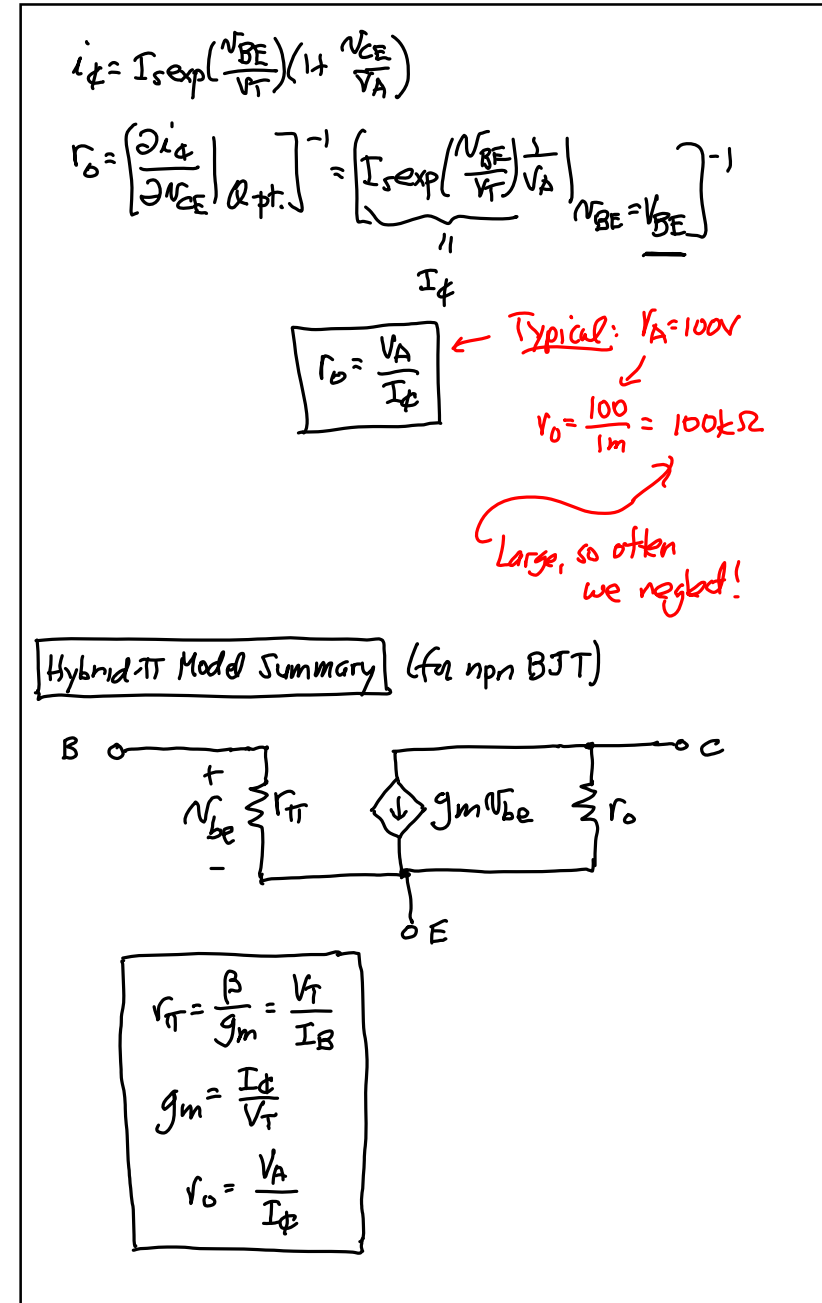 i_C = I_s exp(v_BE/V_T)(1 + v_CE/V_A)
r_o = [∂i_C/∂v_CE | Q pt.]^-1 = [I_s exp(v_BE/V_T) 1/V_A | v_BE = V_BE]^-1
"
I_C
r_o = V_A/I_C ← Typical: V_A = 100V
r_o = 100/1m = 100kΩ
Large, so often
we neglect!
Hybrid-π Model Summary (for npn BJT)
B + v_be - r_π g_m v_be r_o C
E
r_π = β/g_m = V_T/I_B
g_m = I_C/V_T
r_o = V_A/I_C